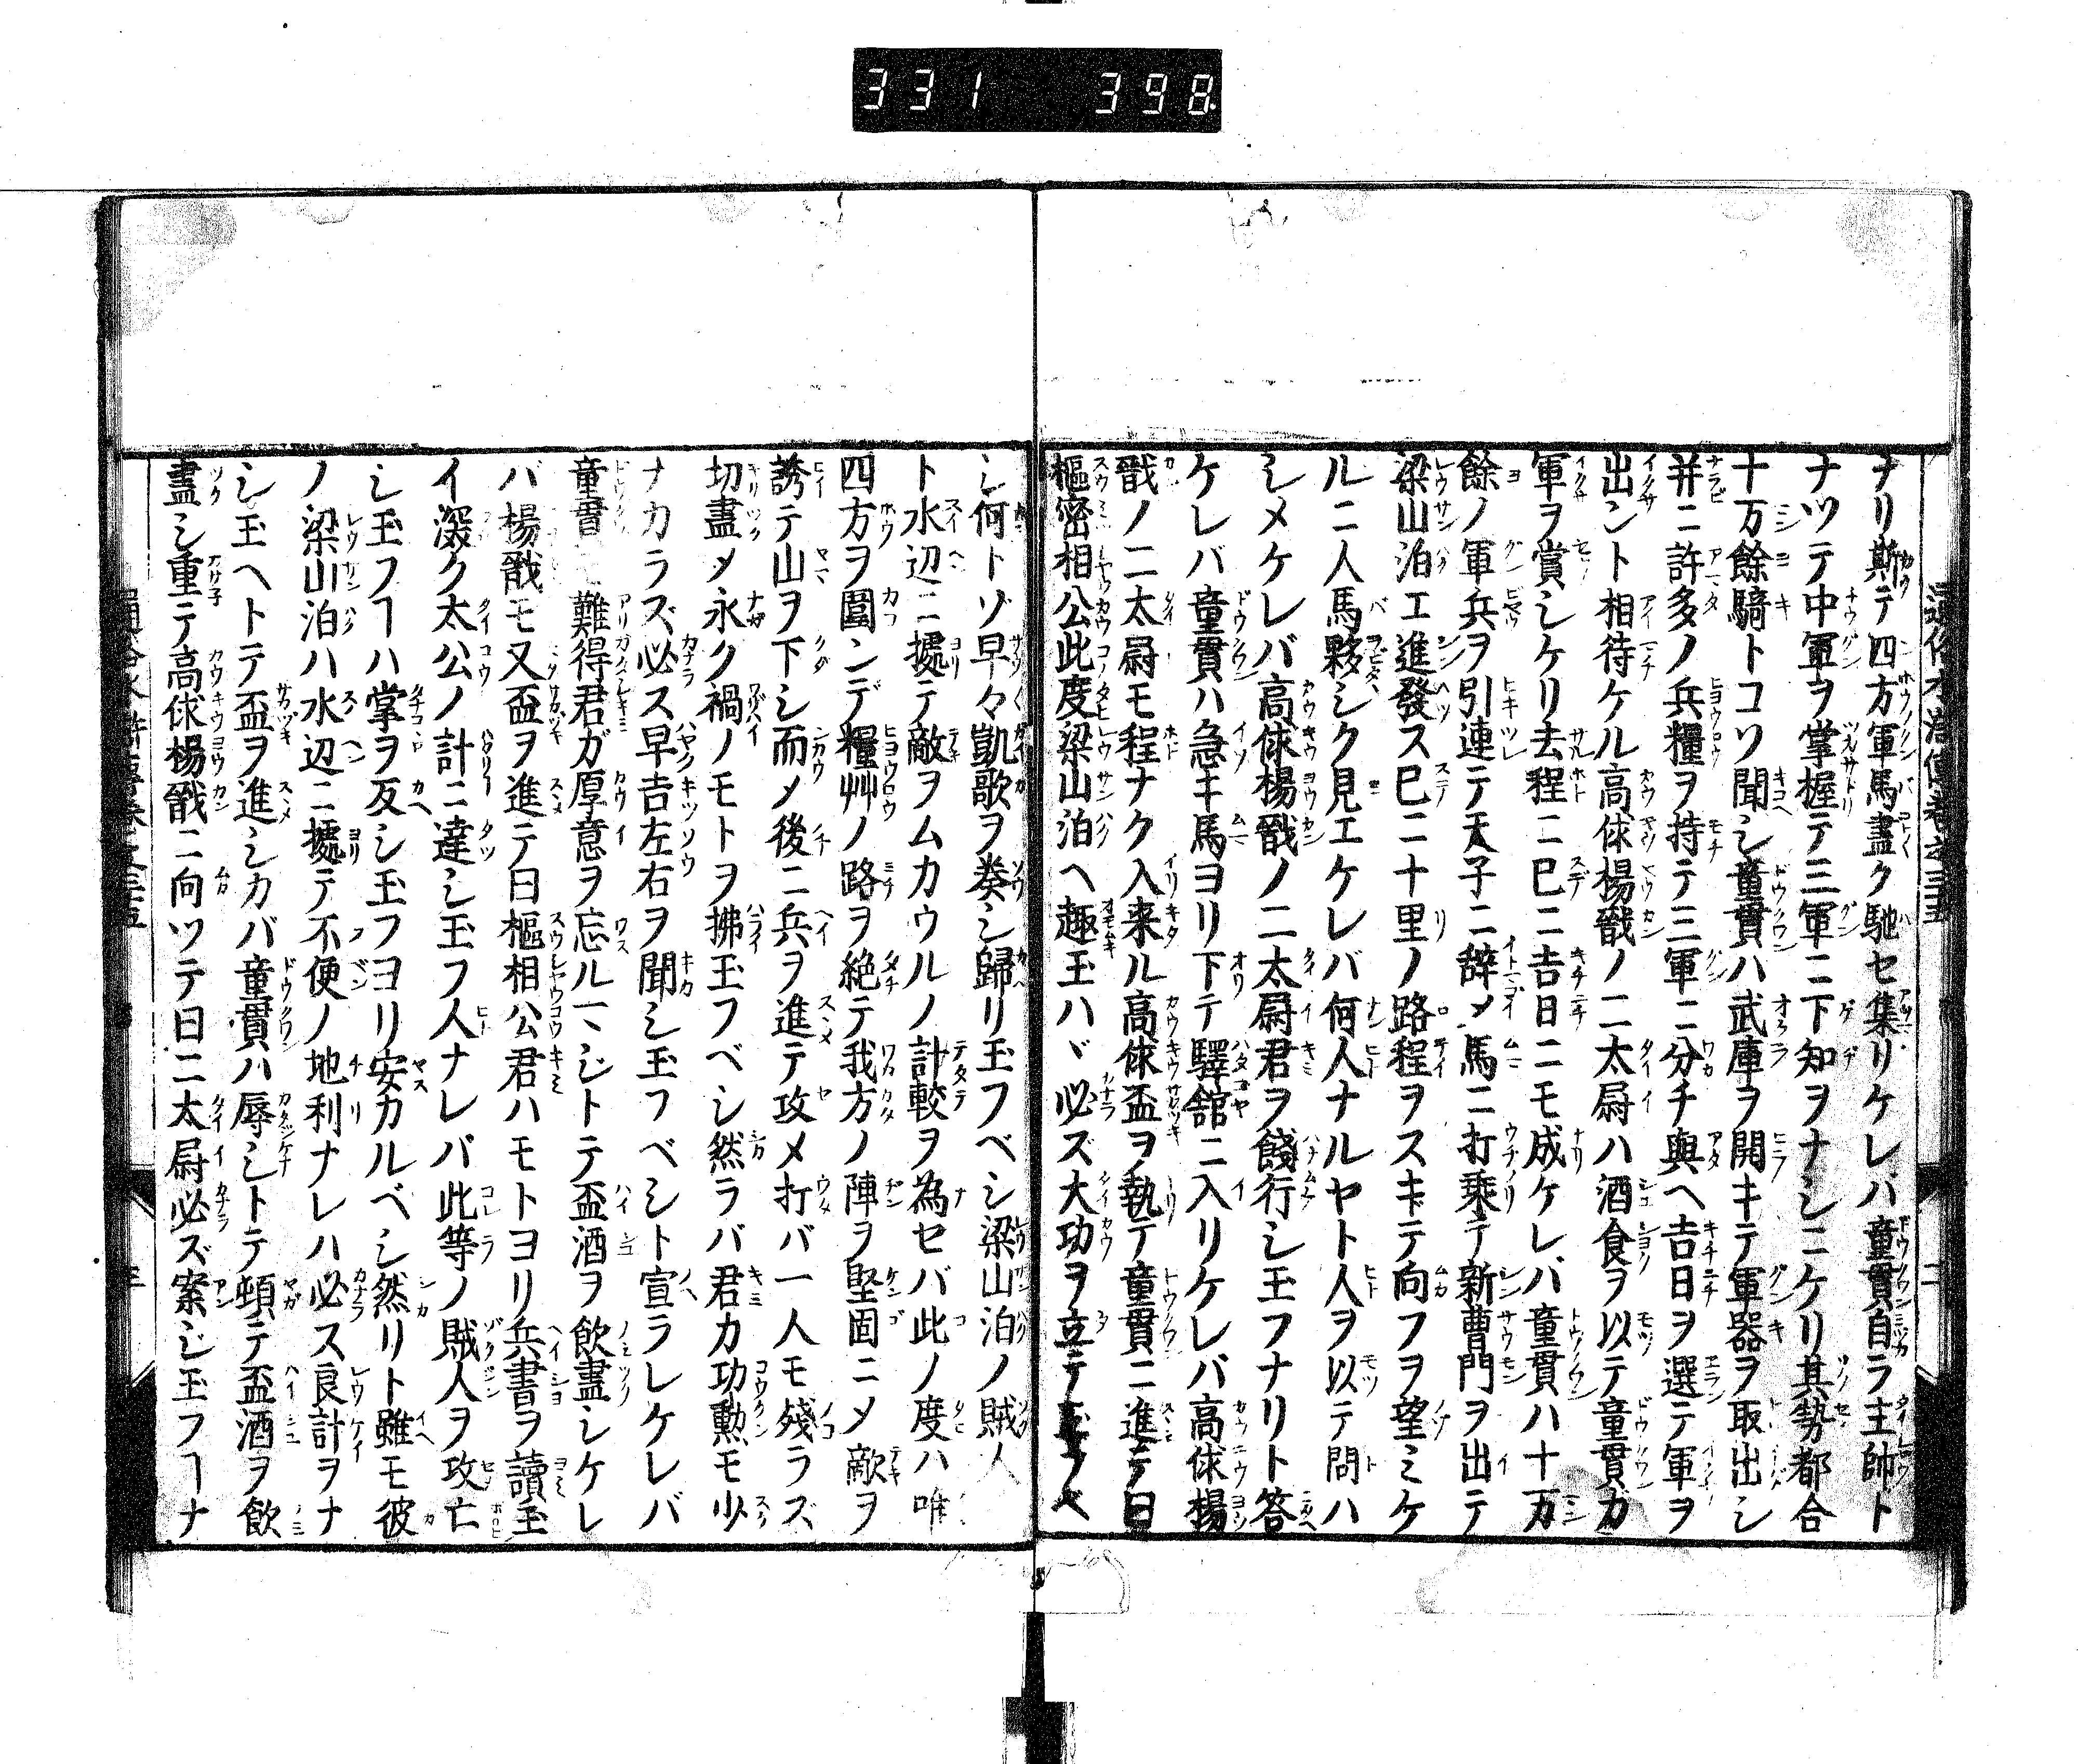 331 398
ナリ斯テ四方軍馬盡ク馳セ集リケレバ童貫自ラ主帥ト
ナツテ中軍ヲ掌握テ三軍ニ下知ヲナシニケリ其勢都合
十万餘騎トコソ聞シ童貫ハ武庫ヲ開キテ軍器ヲ取出シ
并ニ許多ノ兵糧ヲ持テ三軍ニ分チ與ヘ吉日ヲ選テ軍ヲ
出ント相待ケル高俅楊戩ノ二太尉ハ酒食ヲ以テ童貫カ
軍ヲ賞シケリ去程ニ已ニ吉日ニモ成ケレバ童貫ハ十万
餘ノ軍兵ヲ引連テ天子ニ辞メ馬ニ打乘テ新曹門ヲ出テ
梁山泊エ進發ス已ニ十里ノ路程ヲスキテ向フヲ望ミケ
ルニ人馬夥シク見エケレバ何人ナルヤト人ヲ以テ問ハ
シメケレバ高俅楊戩ノ二太尉君ヲ餞行シ玉フナリト答
ケレバ童貫ハ急キ馬ヨリ下テ驛舘ニ入リケレバ高俅楊
戩ノ二太尉モ程ナク入来ル高俅盃ヲ執テ童貫ニ進テ曰
樞密相公此度梁山泊ヘ趣玉ハヾ必ズ大功ヲ立テ玉フベ
シ何トゾ早々凱歌ヲ奏シ歸リ玉フベシ梁山泊ノ賊人
ト水辺ニ據テ敵ヲムカウルノ計較ヲ為セバ此ノ度ハ唯
四方ヲ圍ンデ糧艸ノ路ヲ絶テ我方ノ陣ヲ堅固ニメ敵ヲ
誘テ山ヲ下シ而メ後ニ兵ヲ進テ攻メ打バ一人モ殘ラズ
切盡メ永ク禍ノモトヲ拂玉フベシ然ラバ君カ功勲モ少
ナカラズ必ス早吉左右ヲ聞シ玉フベシト宣ラレケレバ
童貫難得君ガ厚意ヲ忘ルヽシトテ盃酒ヲ飲盡シケレ
バ楊戩モ又盃ヲ進テ曰樞相公君ハモトヨリ兵書ヲ讀玉
イ深ク太公ノ計ニ達シ玉フ人ナレバ此等ノ賊人ヲ攻亡
シ玉フヿハ掌ヲ反シ玉フヨリ安カルベシ然リト雖モ彼
ノ梁山泊ハ水辺ニ據テ不便ノ地利ナレハ必ス良計ヲナ
シ玉ヘトテ盃ヲ進シカバ童貫ハ辱シトテ頓テ盃酒ヲ飲
盡シ重テ高俅楊戩ニ向ツテ曰二太尉必ズ案シ玉フヿナ